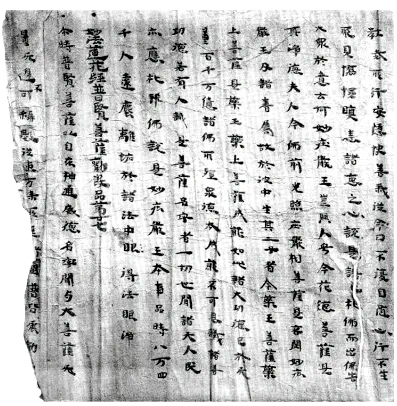 教戒所行安隱快善我從今日不復自隨心行不生
耶見憍慢瞋恚諸惡之心說是語已礼佛而出佛告
大衆於意云何妙莊嚴王豈異人乎今花德菩薩是
其淨德夫人今佛前光照莊嚴相菩薩是哀愍妙莊
嚴王及諸眷屬故於彼中生其二子者今藥王菩薩藥
上菩薩是藥王藥上菩薩成就如此諸大功德已於無
量百千万億諸佛所殖衆德本成就不可思議諸善
功德若有人識是二菩薩名字者一切世間諸天人民
亦應礼拜佛說是妙莊嚴王本事品時八万四
千人遠塵離垢於諸法中眼得法眼淨
妙法蓮花經普賢菩薩勸發品第廿七
尒時普賢菩薩以自在神通威德名聞与大菩薩無
量無邊不可稱數從東方來所經諸國普皆震動